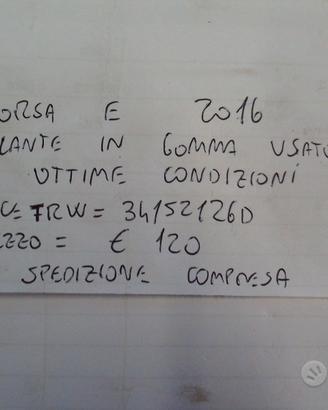 ORSA E 2016
LANTE IN GOMMA USATO
OTTIME CONDIZIONI
CE TRW = 34152126D
EZZO = € 120
SPEDIZIONE COMPRESA